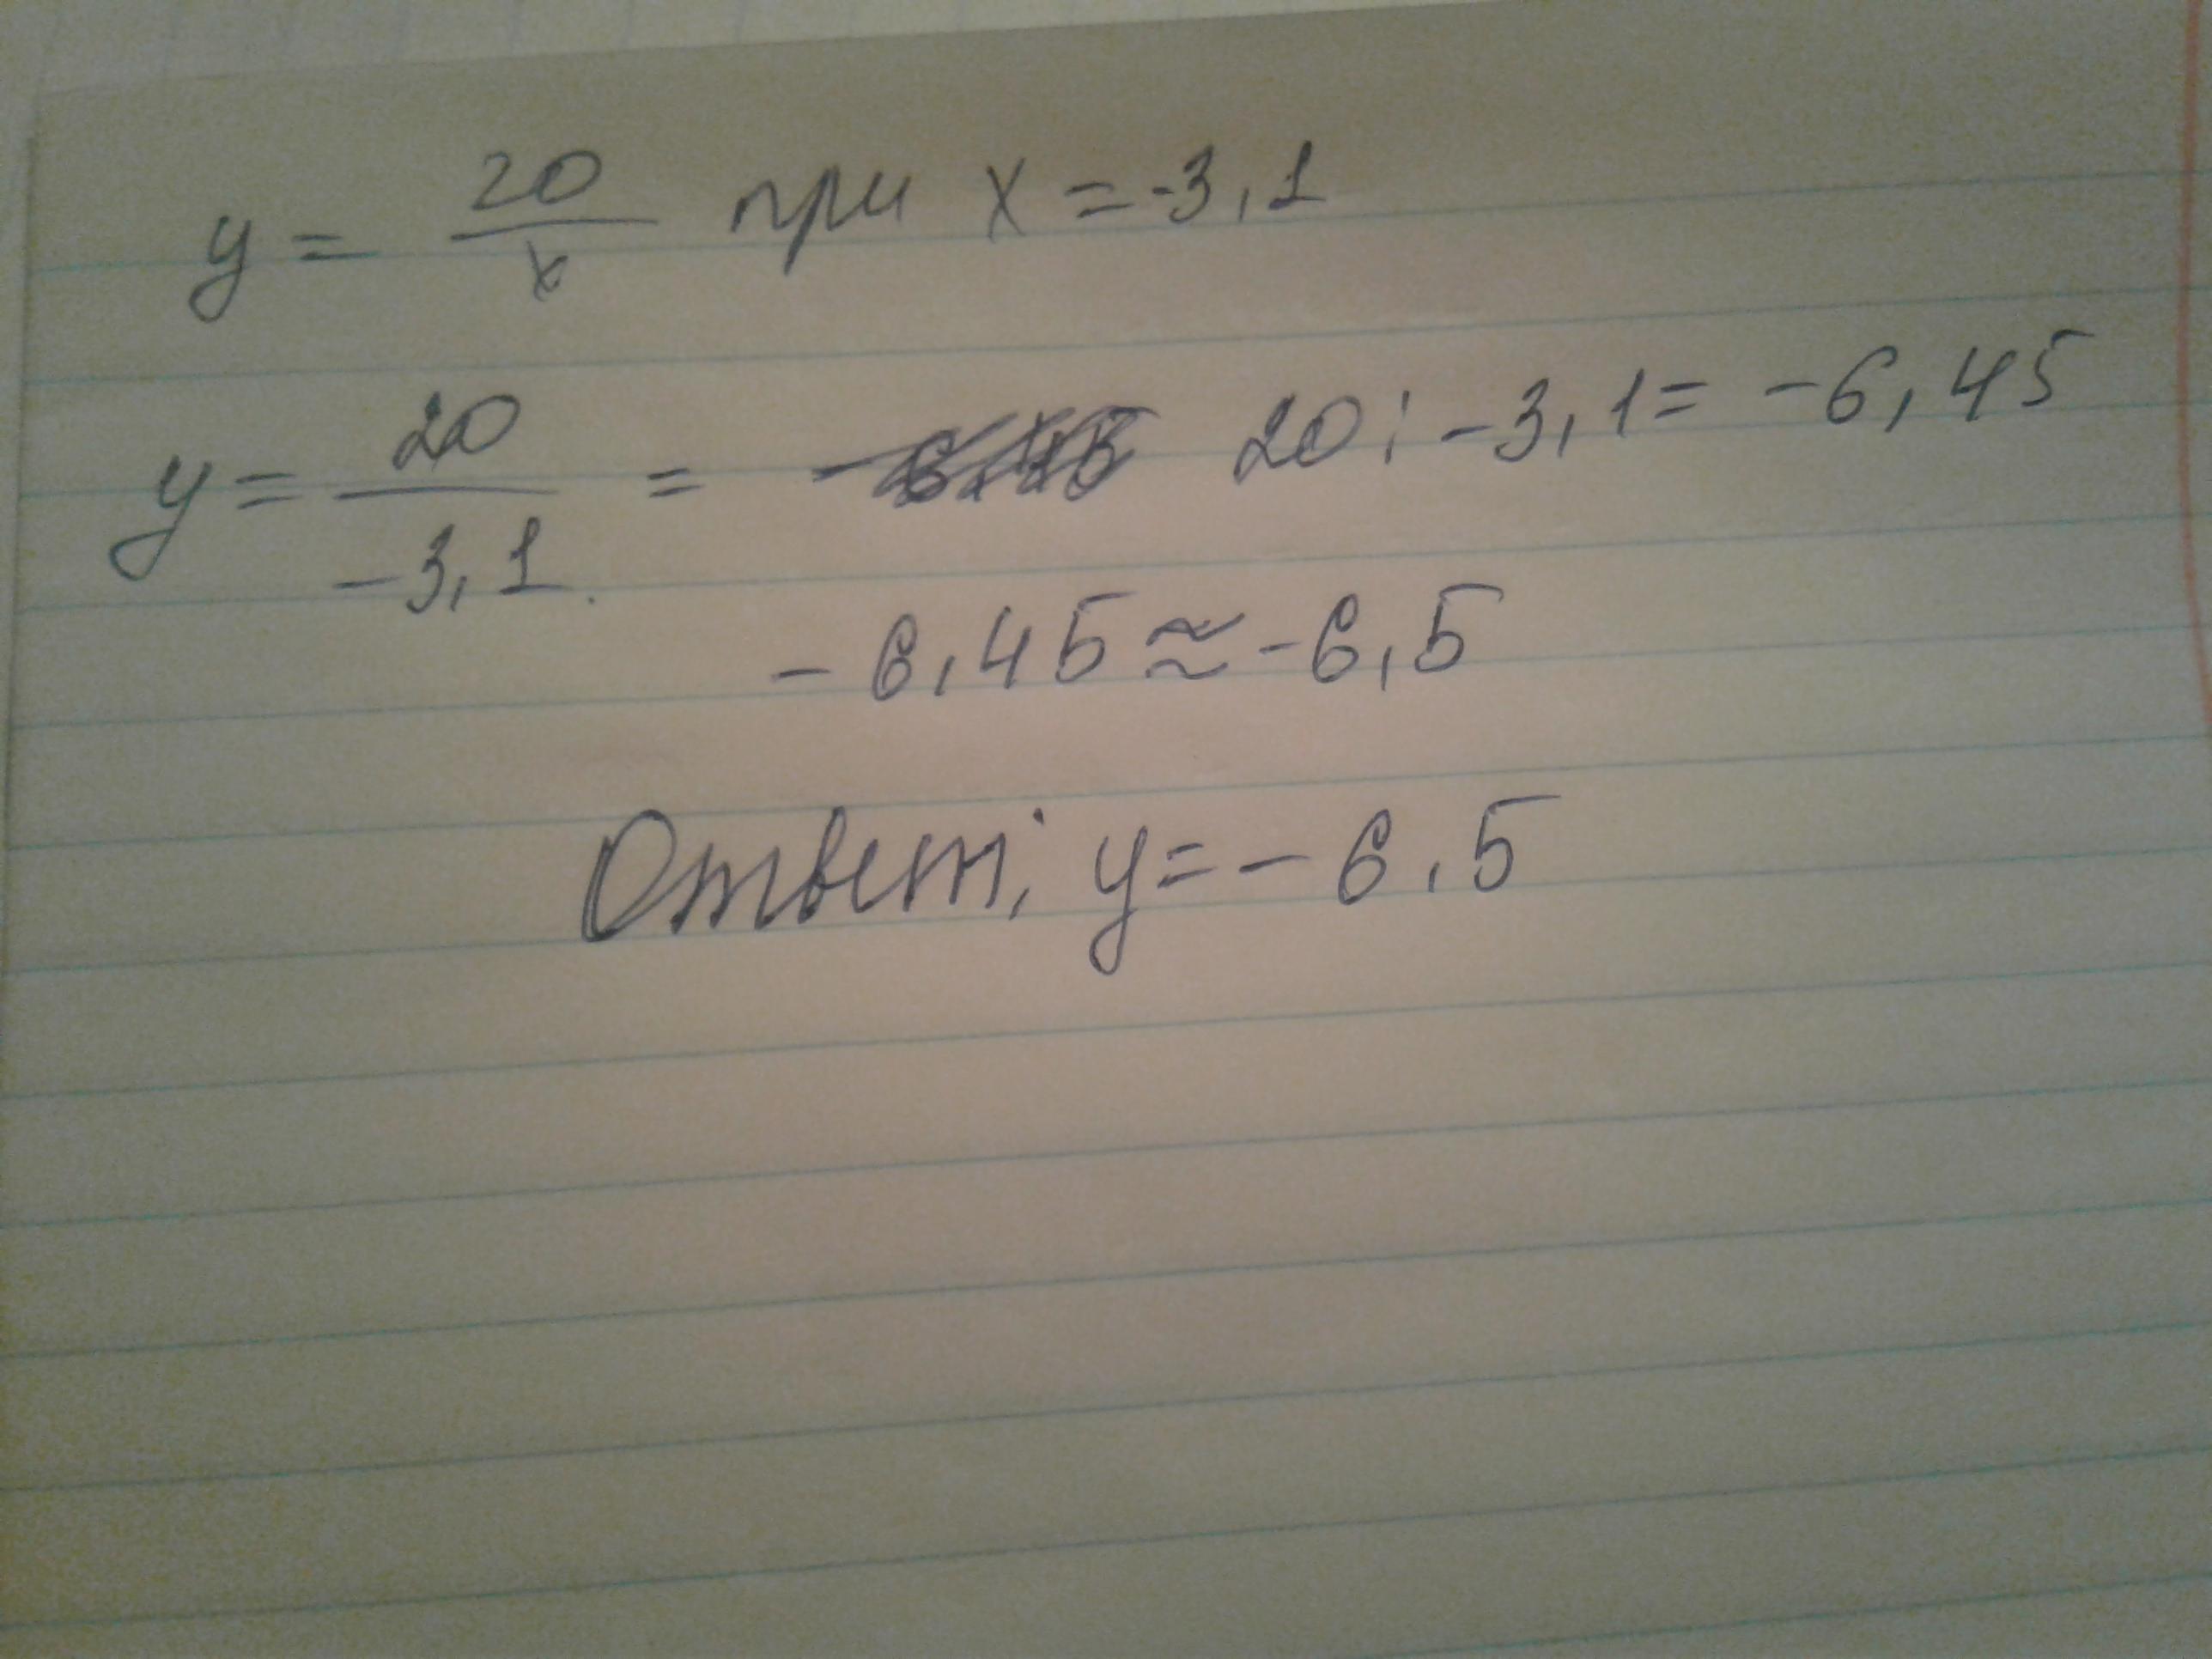 y = 20/x при x = -3,1
y = 20/-3,1 = 20 : -3,1 = -6,45
-6,45 ≈ -6,5
Ответ: y = -6,5